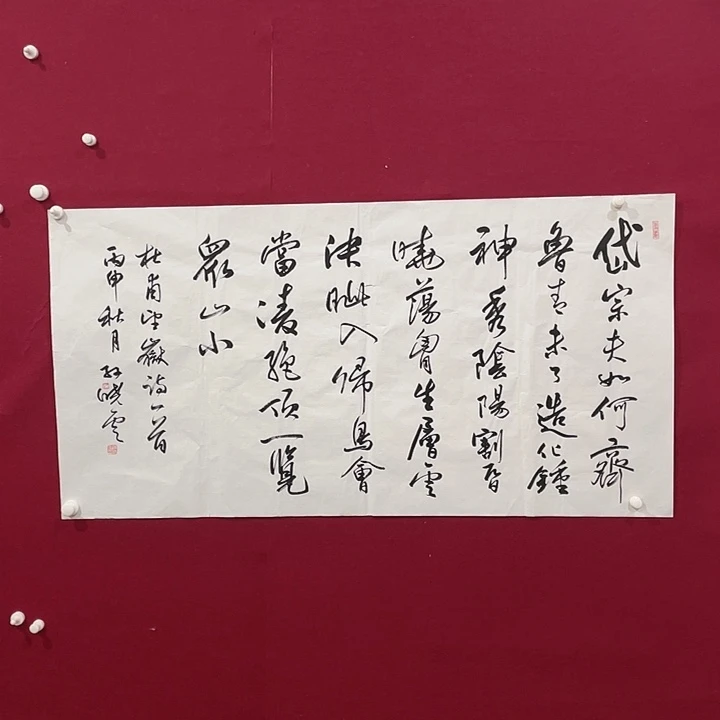 岱宗夫如何齊
魯青未了造化鍾
神秀陰陽割昏
曉蕩胷生層雲
決眦入歸鳥會
當凌絕頂一覽
眾山小
杜甫望嶽詩一首
丙申秋月孫曉雲